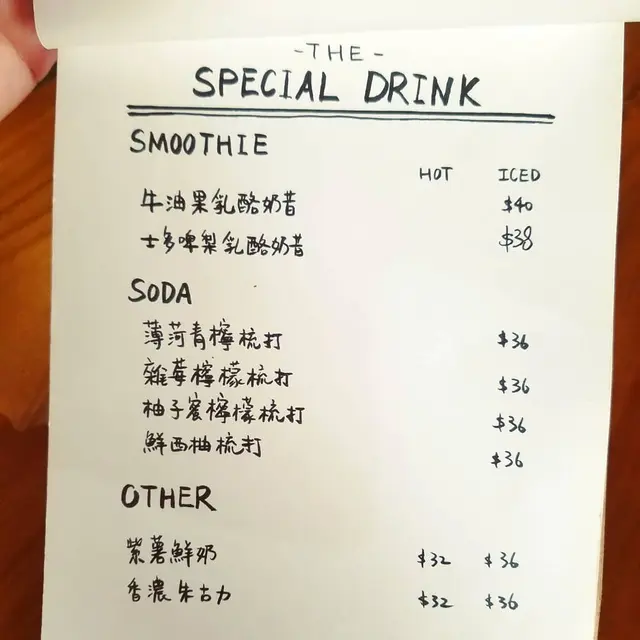 -THE-
SPECIAL DRINK
SMOOTHIE
HOT ICED
牛油果乳酪奶昔 $40
士多啤梨乳酪奶昔 $38
SODA
薄荷青檸梳打 $36
雜莓檸檬梳打 $36
柚子蜜檸檬梳打 $36
鮮西柚梳打 $36
OTHER
紫薯鮮奶 $32 $36
香濃朱古力 $32 $36